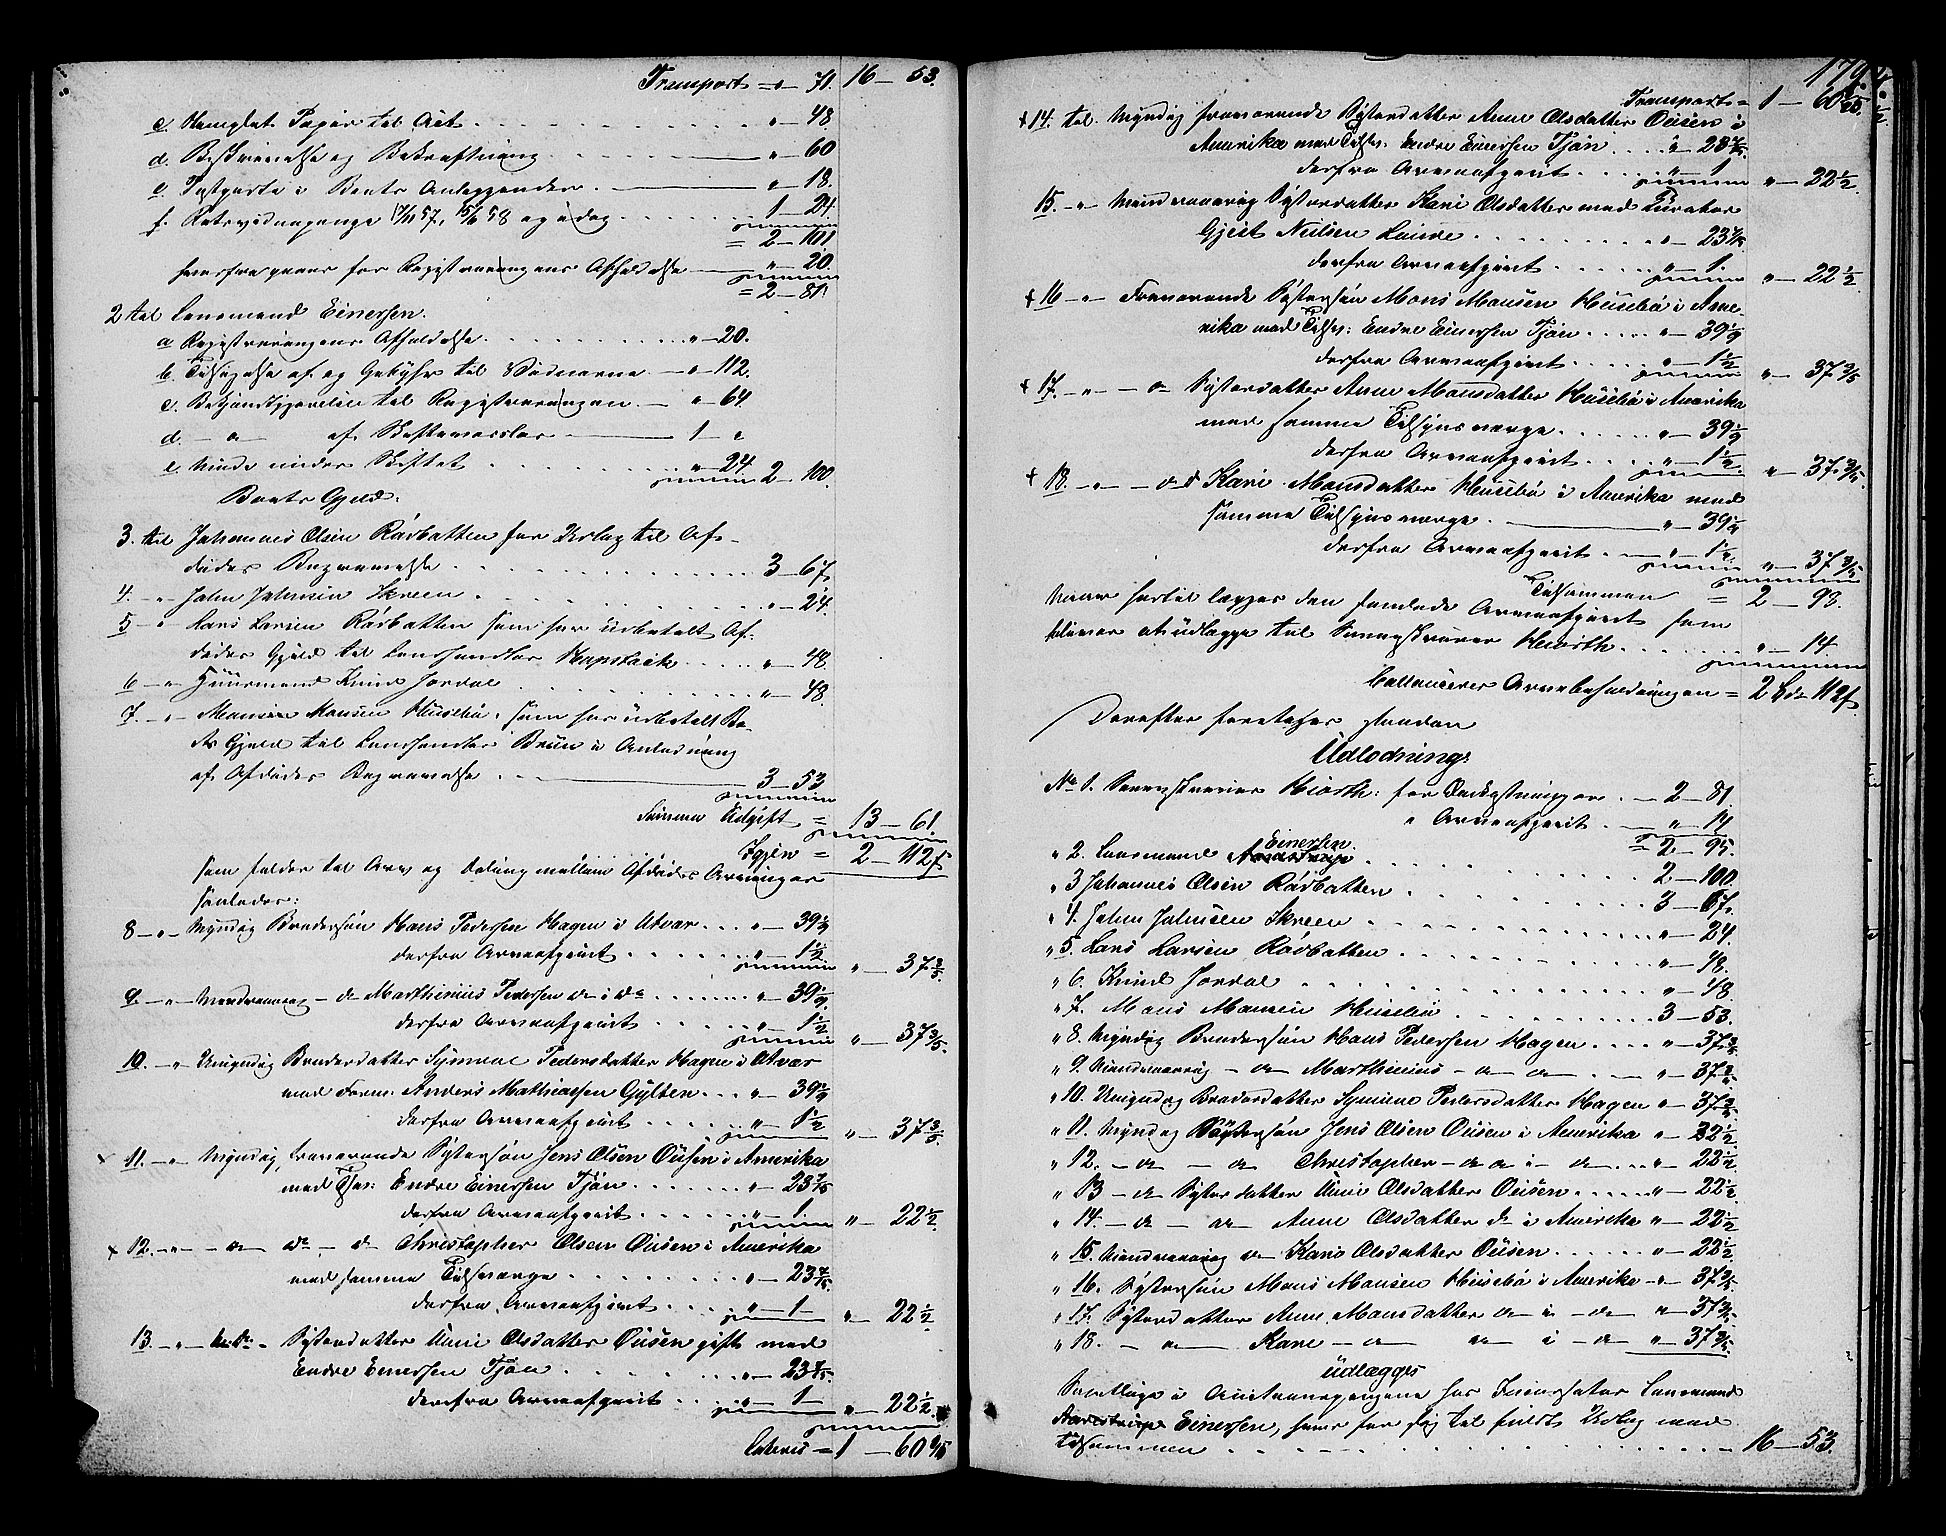 Transport = " — 71. 16 — 53.
c. Stemplet Papir til Act " — 48
d. Beskrivelse og Bekræftning " — 60
e. Postporto i Boets Anliggender " — 18.
f. Retsvidnepenge 17/11 57, 15/6 58 og i dag 1 — 24.
= 2 — 101
herfra gaaer for Registreringens Afholdelse " — 20.
= 2 — 81.
2 til Lensmand Einersen.
a Registreringens Afholdelse " — 20.
b. Tilsigelse af og Gebyhr til Vidnerne " — 112.
c. Bekjendtgjørelse til Registreringen " — 64
d. — " — af Skiftesamling 1 — "
e. Vidne under Skiftet " — 24 2 — 100.
Boets Gjeld.
3. til Johannes Olsen Rådbatten for Udlæg til Af-
dødes Begravelse 3 — 67.
4. — " John Johnsen Skreen " — 24.
5 — " Lars Larsen Rådbatten som har udbetalt Af-
dødes Gjeld til Landhandler Kapstack " — 48.
6 — " Huusmand Knud Hovdal " — 48.
7. — " Monsine Monsen Husebø, som har udbetalt Bo-
ets Gjeld til Landhandler Brun i Anledning
af Afdødes Begravelse 3 — 53
Summa Udgift = 13 — 61.
Igjen = 2 — 112 f
som falder til Arv og Deling mellem Afdødes Arvinger
saaledes:
8 — " — Myndig Brodersøn Hans Pedersen Hagen i Utvær " — 39 1/9
derfra Arveafgivt " — 1 1/2 " — 37 3/5.
9. — " — Mindreaarig — do Marthinius Pedersen do i do " — 39 1/9.
derfra Arveafgivt " — 1 1/2 " — 37 3/5.
10. — " Umyndig Broderdatter Synneve Pedersdatter Hagen i Utvær
med Form. Anders Mathiassen Gylten " — 39 1/9
derfra Arveafgivt " — 1 1/2 " — 37 3/5
11. — " — Myndig, fraværende Søstersøn Jens Olsen Ousen i Amerika
med Tilsv: Endre Einersen Tjøn " — 23 7/15
derfra Arveafgivt " — 1 " — 22 1/2.
x 12. — " — do do — do Christopher Olsen Ousen i Amerika
med samme Tilsværge " — 23 7/15.
derfra Arveafgivt " — 1 — " — 22 1/2
13. — " do — Søsterdatter Unni Olsdatter Ousen gift med
Endre Einersen Tjøn " — 23 7/15.
derfra Arveafgivt " — 1 — " — 22 1/2.
Lateris = 1 — 60 9/10
179.
Transport = 1 — 60
x 14. til Myndig fraværende Søsterdatter Anne Olsdatter Ousen i
Amerika med Tilsv: Endre Einersen Tjøn " — 23 7/15.
derfra Arveafgivt " — 1 " — 22 1/2.
15. — " Mindreaarig Søsterdatter Kari Olsdatter med Curator
Gjest Nilsen Leinde " — 23 7/15
derfra Arveafgivt " — 1. " — 22 1/2
x 16 — " Fraværende Søstersøn Mons Monsen Husebø i Ame-
rika med Tilsv: Endre Einersen Tjøn " — 39 1/9
derfra Arveafgivt " — 1 1/2 " — 37 3/5
x 17. — " — do Søsterdatter Anne Monsdatter Husebø i Amerika
med samme Tilsynsværge " — 39 1/9
derfra Arveafgivt " — 1 1/2. " — 37 3/5.
x 18. — " — do d Kari Monsdatter Husebø i Amerika med
samme Tilsynsværge " — 39 1/9
derfra Arveafgivt " — 1 1/2. " — 37 3/5
Tilsammen = 2 — 98.
Naar hertil lægges den samlede Arveafgivt som
bliver at udlægge til Sorenskriver Heiorth " — 14
balancerer Arvebeholdningen = 2 Spd 112 f.
Derefter foretoges saadan
Udlodning.
No 1. Sorenskriver Hiorth: for Omkostninger — 2 — 81
" Arveafgivt " — 14
= 2 — 95.
" 2. Lensmand Einersen 2 — 100.
" 3 Johannes Olsen Rådbatten 3 — 67.
" 4. John Johnsen Skreen " — 24.
" 5. Lars Larsen Rådbatten " — 48.
" 6. Knud Hovdal " — 48
" 7. Mons Monsen Husebø 3 — 53.
" 8. Myndig Brodersøn Hans Pedersen Hagen " — 37 3/5
" 9. Mindreaarig — do Marthinius — do do " — 37 3/5
" 10. Umyndig Broderdatter Synneve Pedersdatter Hagen " — 37 3/5
" 11. Myndig Søstersøn Jens Olsen Ousen i Amerika " — 22 1/2
" 12. — do — do Christopher — do do i — do " — 22 1/2.
" 13 — do Søsterdatter Unni Olsdatter Ousen " — 22 1/2
" 14. — do — do Anne Olsdatter do i Amerika " — 22 1/2
" 15. Mindreaarig do Kari Olsdatter Ousen " — 22 1/2
" 16. Søstersøn Mons Monsen Husebø i Amerika " — 37 3/5.
" 17. Søsterdatter Anne Monsdatter do i — do " — 37 3/5
" 18. — do — Kari — do do i — do " — 37 3/5.
udlægges
Samtlige i Auctionspengene hos Incassator Lensmand
Einersen, som for sig til fuldt Udlæg med
tilsammen 16 — 53.